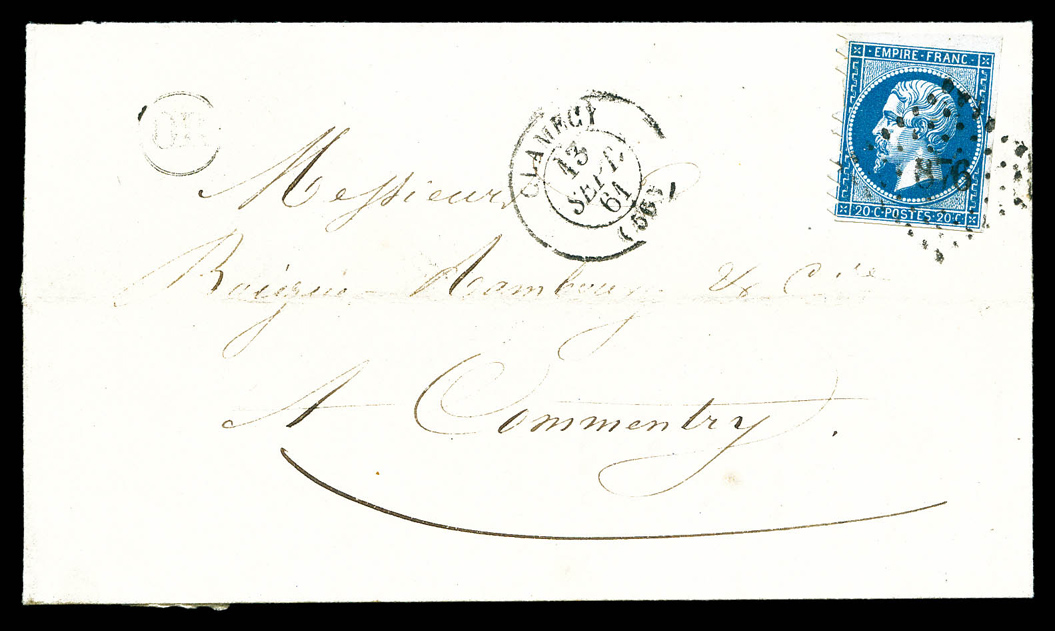 OR
CLAMECY
13
SEPT.
61
(56)
EMPIRE · FRANC ·
20 C · POSTES · 20 C
876
Messieurs
Rambourg & Cie
A Commentry.